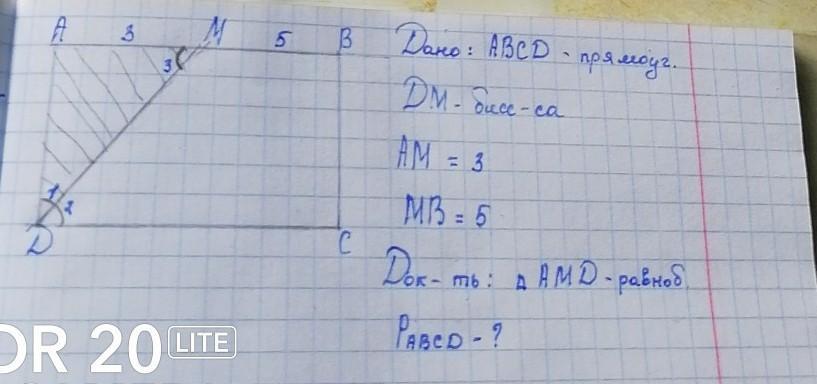 A 3 M 5 B
3
1
2
D C
Дано: ABCD - прямоуг.
DM - бисс-са
AM = 3
MB = 5
Док-ть: △ AMD - равноб.
P_ABCD - ?
OR 20 LITE